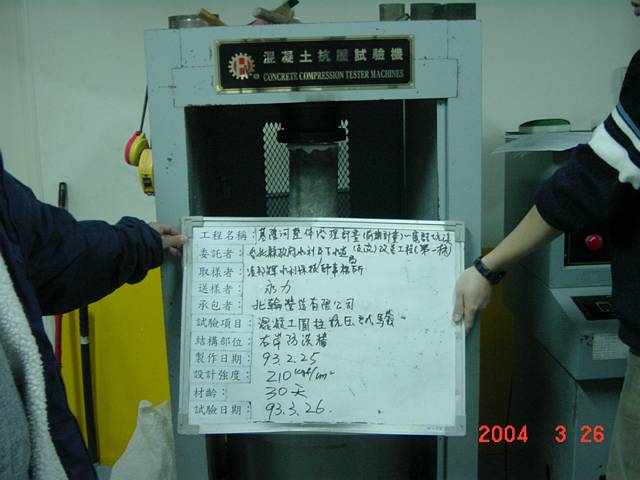 混凝土抗壓試驗機
CONCRETE COMPRESSION TESTER MACHINES
工程名稱: 基隆河整体治理計畫(前期計畫)一
改善工程(第一標)
委託者: 台北縣政府水利及下水道局
取樣者: 水利技師事務所
送樣者: 永力
承包者: 北 營造有限公司
試驗項目: 混凝土圓柱抗压試驗
結構部位: 右岸防洪牆
製作日期: 93.2.25
設計強度: 210 kgf/cm²
材齡: 30天
試驗日期: 93.3.26.
2004 3 26